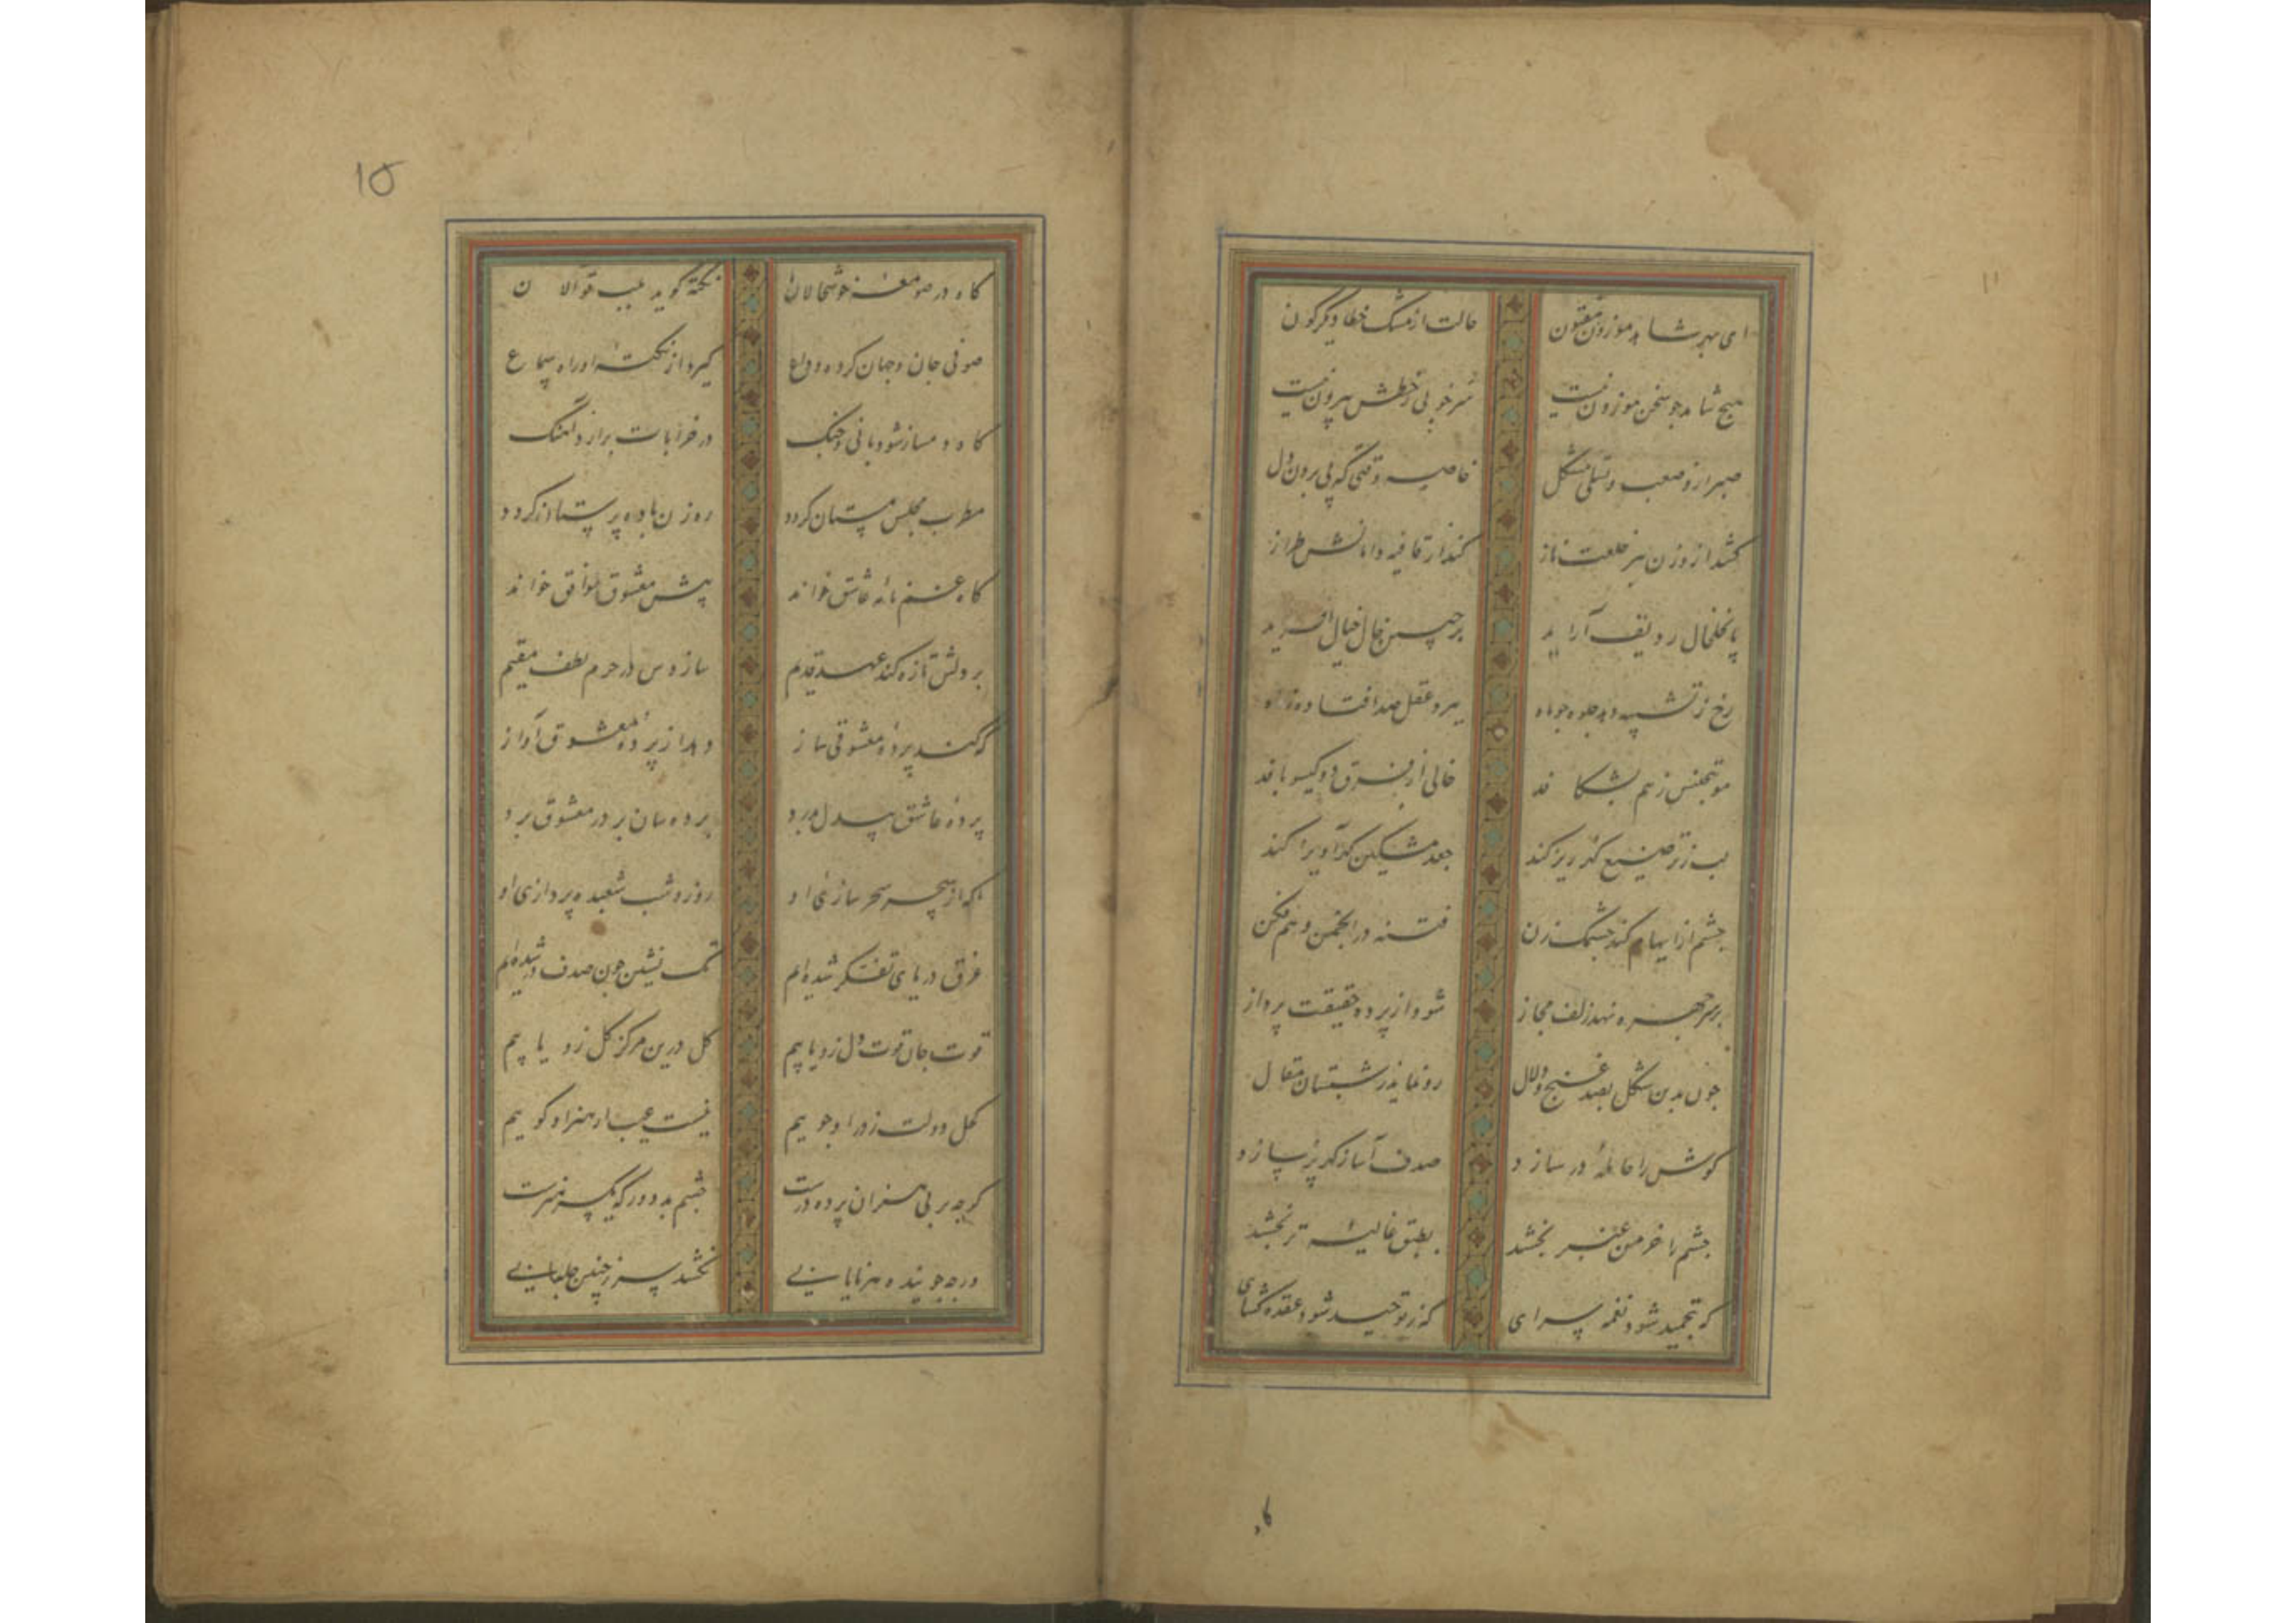 ۱۱
ای بهر شاهد موزون مفتون حالت از مشک خطا دیگرگون
هیچ شاهد چو سخن موزون نیست سر خوبی ز خطش بیرون نیست
صبر ازو صعب و تسلی مشکل خاصه وقتی که پی بردن دل
کشد از وزن ببر خلعت ناز کند از قافیه دامانش طراز
پا بخلخال ردیف آراید بر جبین خال خیال افزاید
رخ ز تشبیه دهد جلوه چو ماه ببرد عقل صد افتاده ز راه
مو بتجنیس ز هم بشکافد خالی از فرق دو گیسو بافد
لب ز ترصیع گهرریز کند جعد مشکین گهرآویز کند
چشم از ایهام کند چشمک زن فتنه در انجمن وهم فکن
بر سر چهره نهد زلف مجاز شود از پرده حقیقت پرداز
چون بدین شکل بصد غنج و دلال رو نماید ز شبستان مقال
گوش را حامله در سازد صدف آسا ز گهر پر سازد
چشم را خرمن عنبر بخشد بطبق غالیه تر بخشد
که بتمجید شود نغمه سرای که ز توحید شود عقده گشای
کاه
۱۵
گاه در صومعه خوشحالان نکته گوید بلب قوالان
صوفی جان و جهان کرده وداع گیرد از نکته او راه سماع
گاه دمساز شود با نی و چنگ در خرابات برآرد آهنگ
مطرب مجلس مستان گردد ره زن باده پرستان گردد
گاه غم نامه عاشق خواند پیش معشوق موافق خواند
بر دلش تازه کند عهد قدیم سازدش در حرم لطف مقیم
که کند پرده معشوقی ساز دهد از پرده معشوق آواز
پرده عاشق بیدل بدرد پرده سان بر در معشوق برد
ما که از سحر سازی او روز و شب شعبده پردازی او
غرق دریای تفکر شده‌ایم تک نشین چون صدف در شده‌ایم
قوت جان قوت دل زو یابیم گل درین مرکز گل زو یابیم
کحل دولت ز در او جوییم نیست عیب ار هنر او گوییم
گرچه بر بی هنران پرده درست چشم بد دور که یکسر هنرست
ورچه جوینده هنر نابینی نخشد سر ز چنین جلبابی